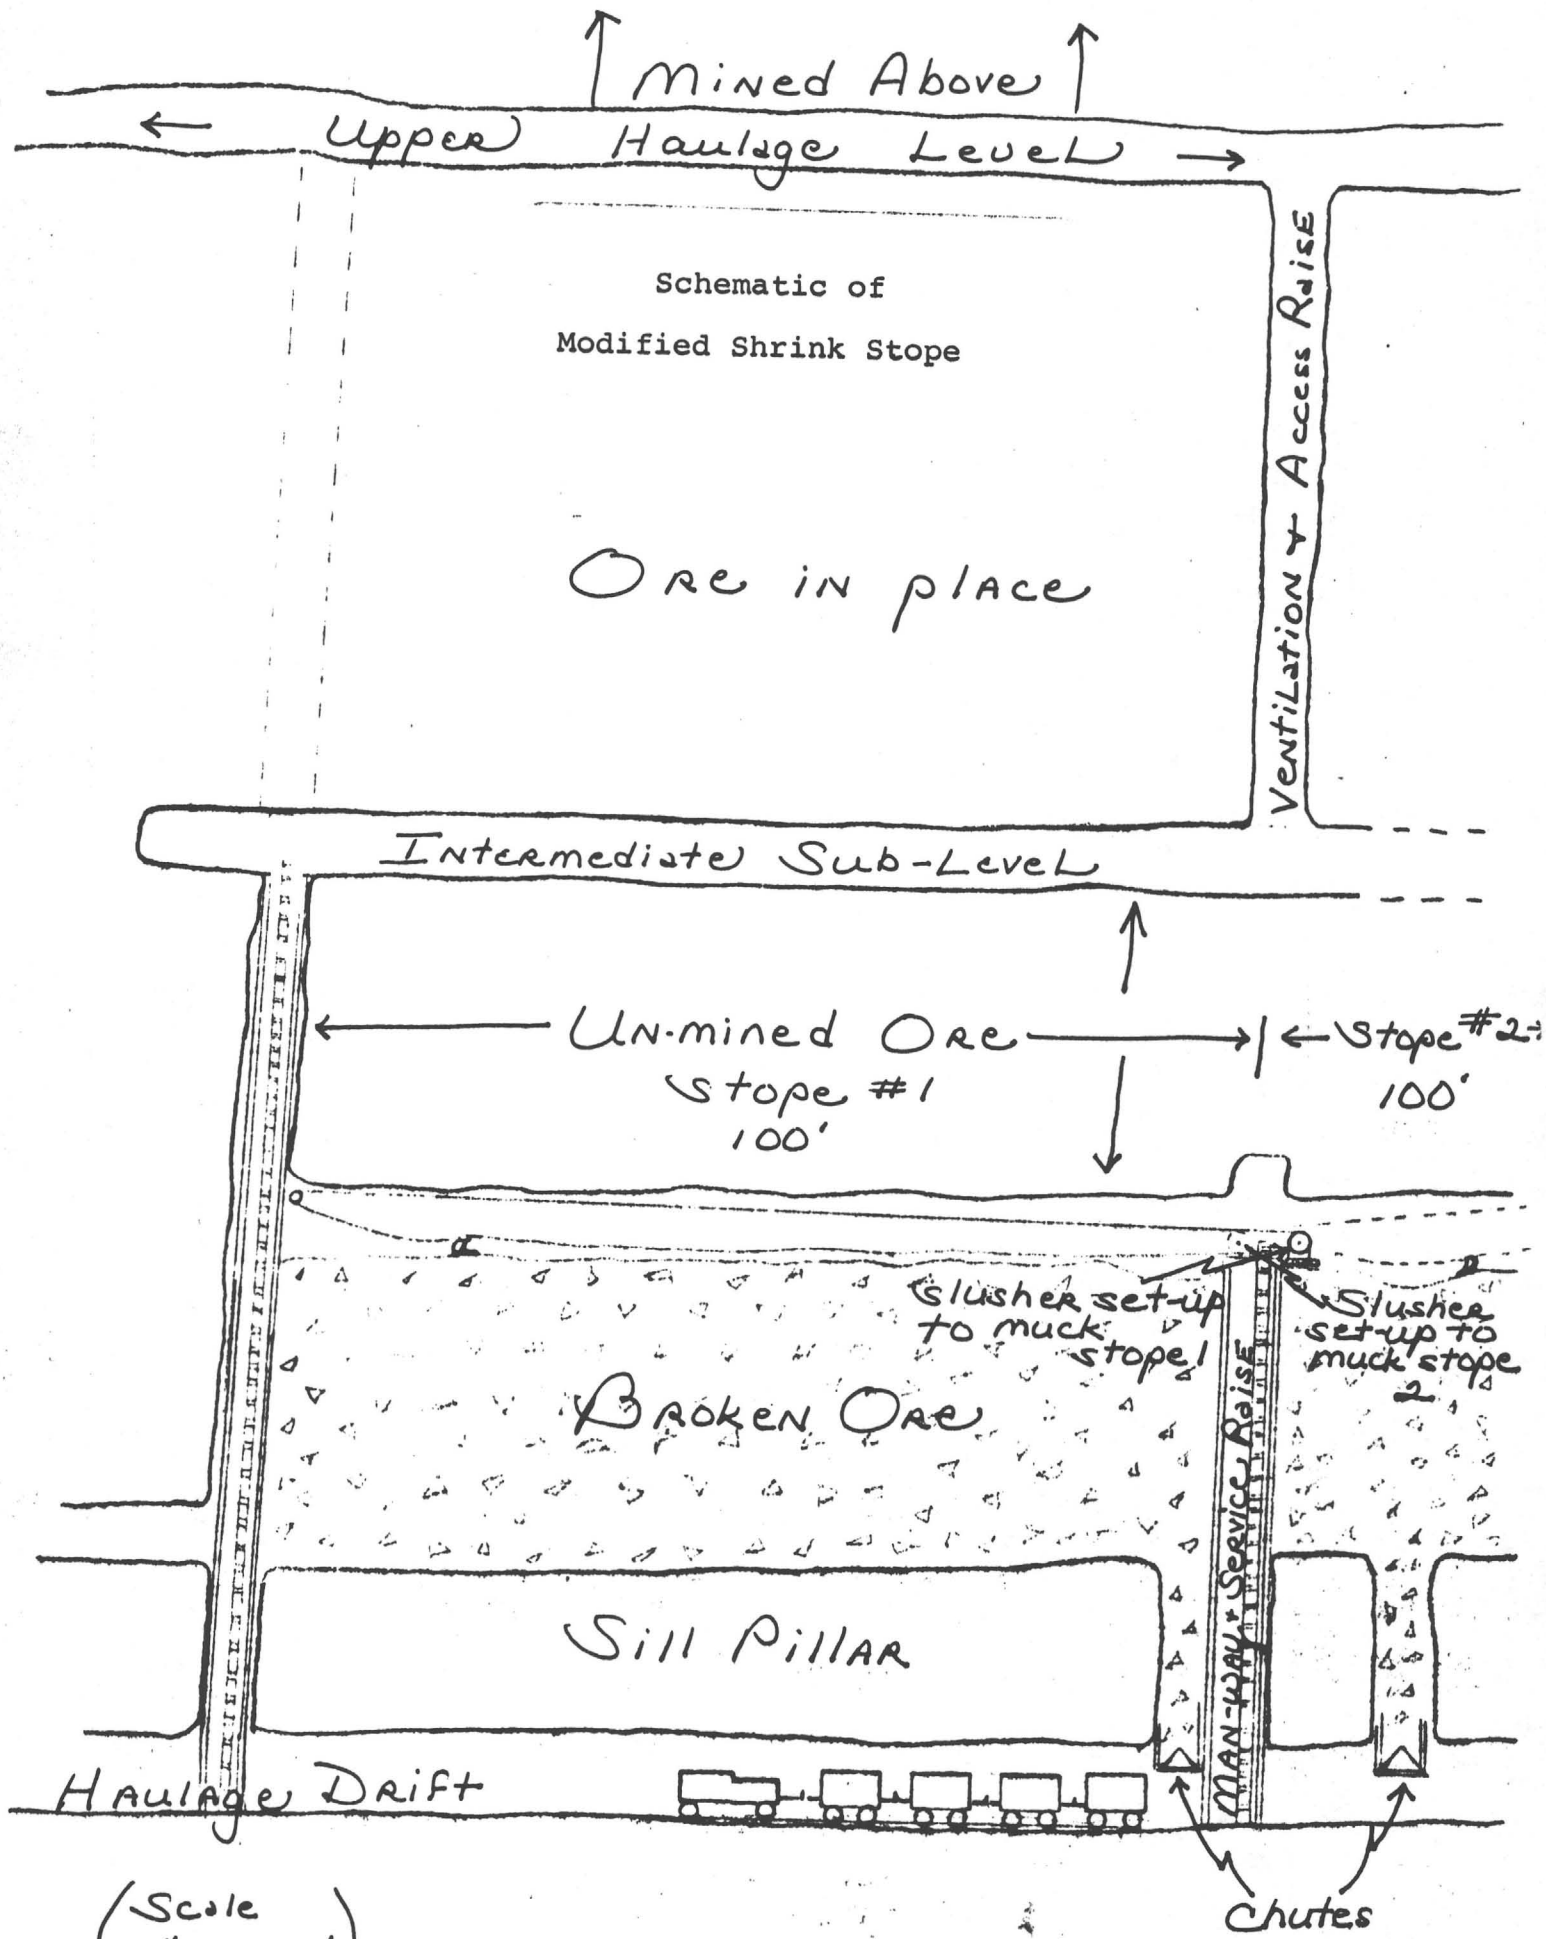 Mined Above
Upper Haulage Level
Schematic of
Modified Shrink Stope
Ventilation + Access Raise
Ore in place
Intermediate Sub-Level
Un-mined Ore
Stope #1
100'
Stope #2
100'
Slusher set-up
to muck
stope 1
Slusher
set-up to
muck stope
2
Broken Ore
Man-way + Service Raise
Sill Pillar
Haulage Drift
Chutes
(Scale